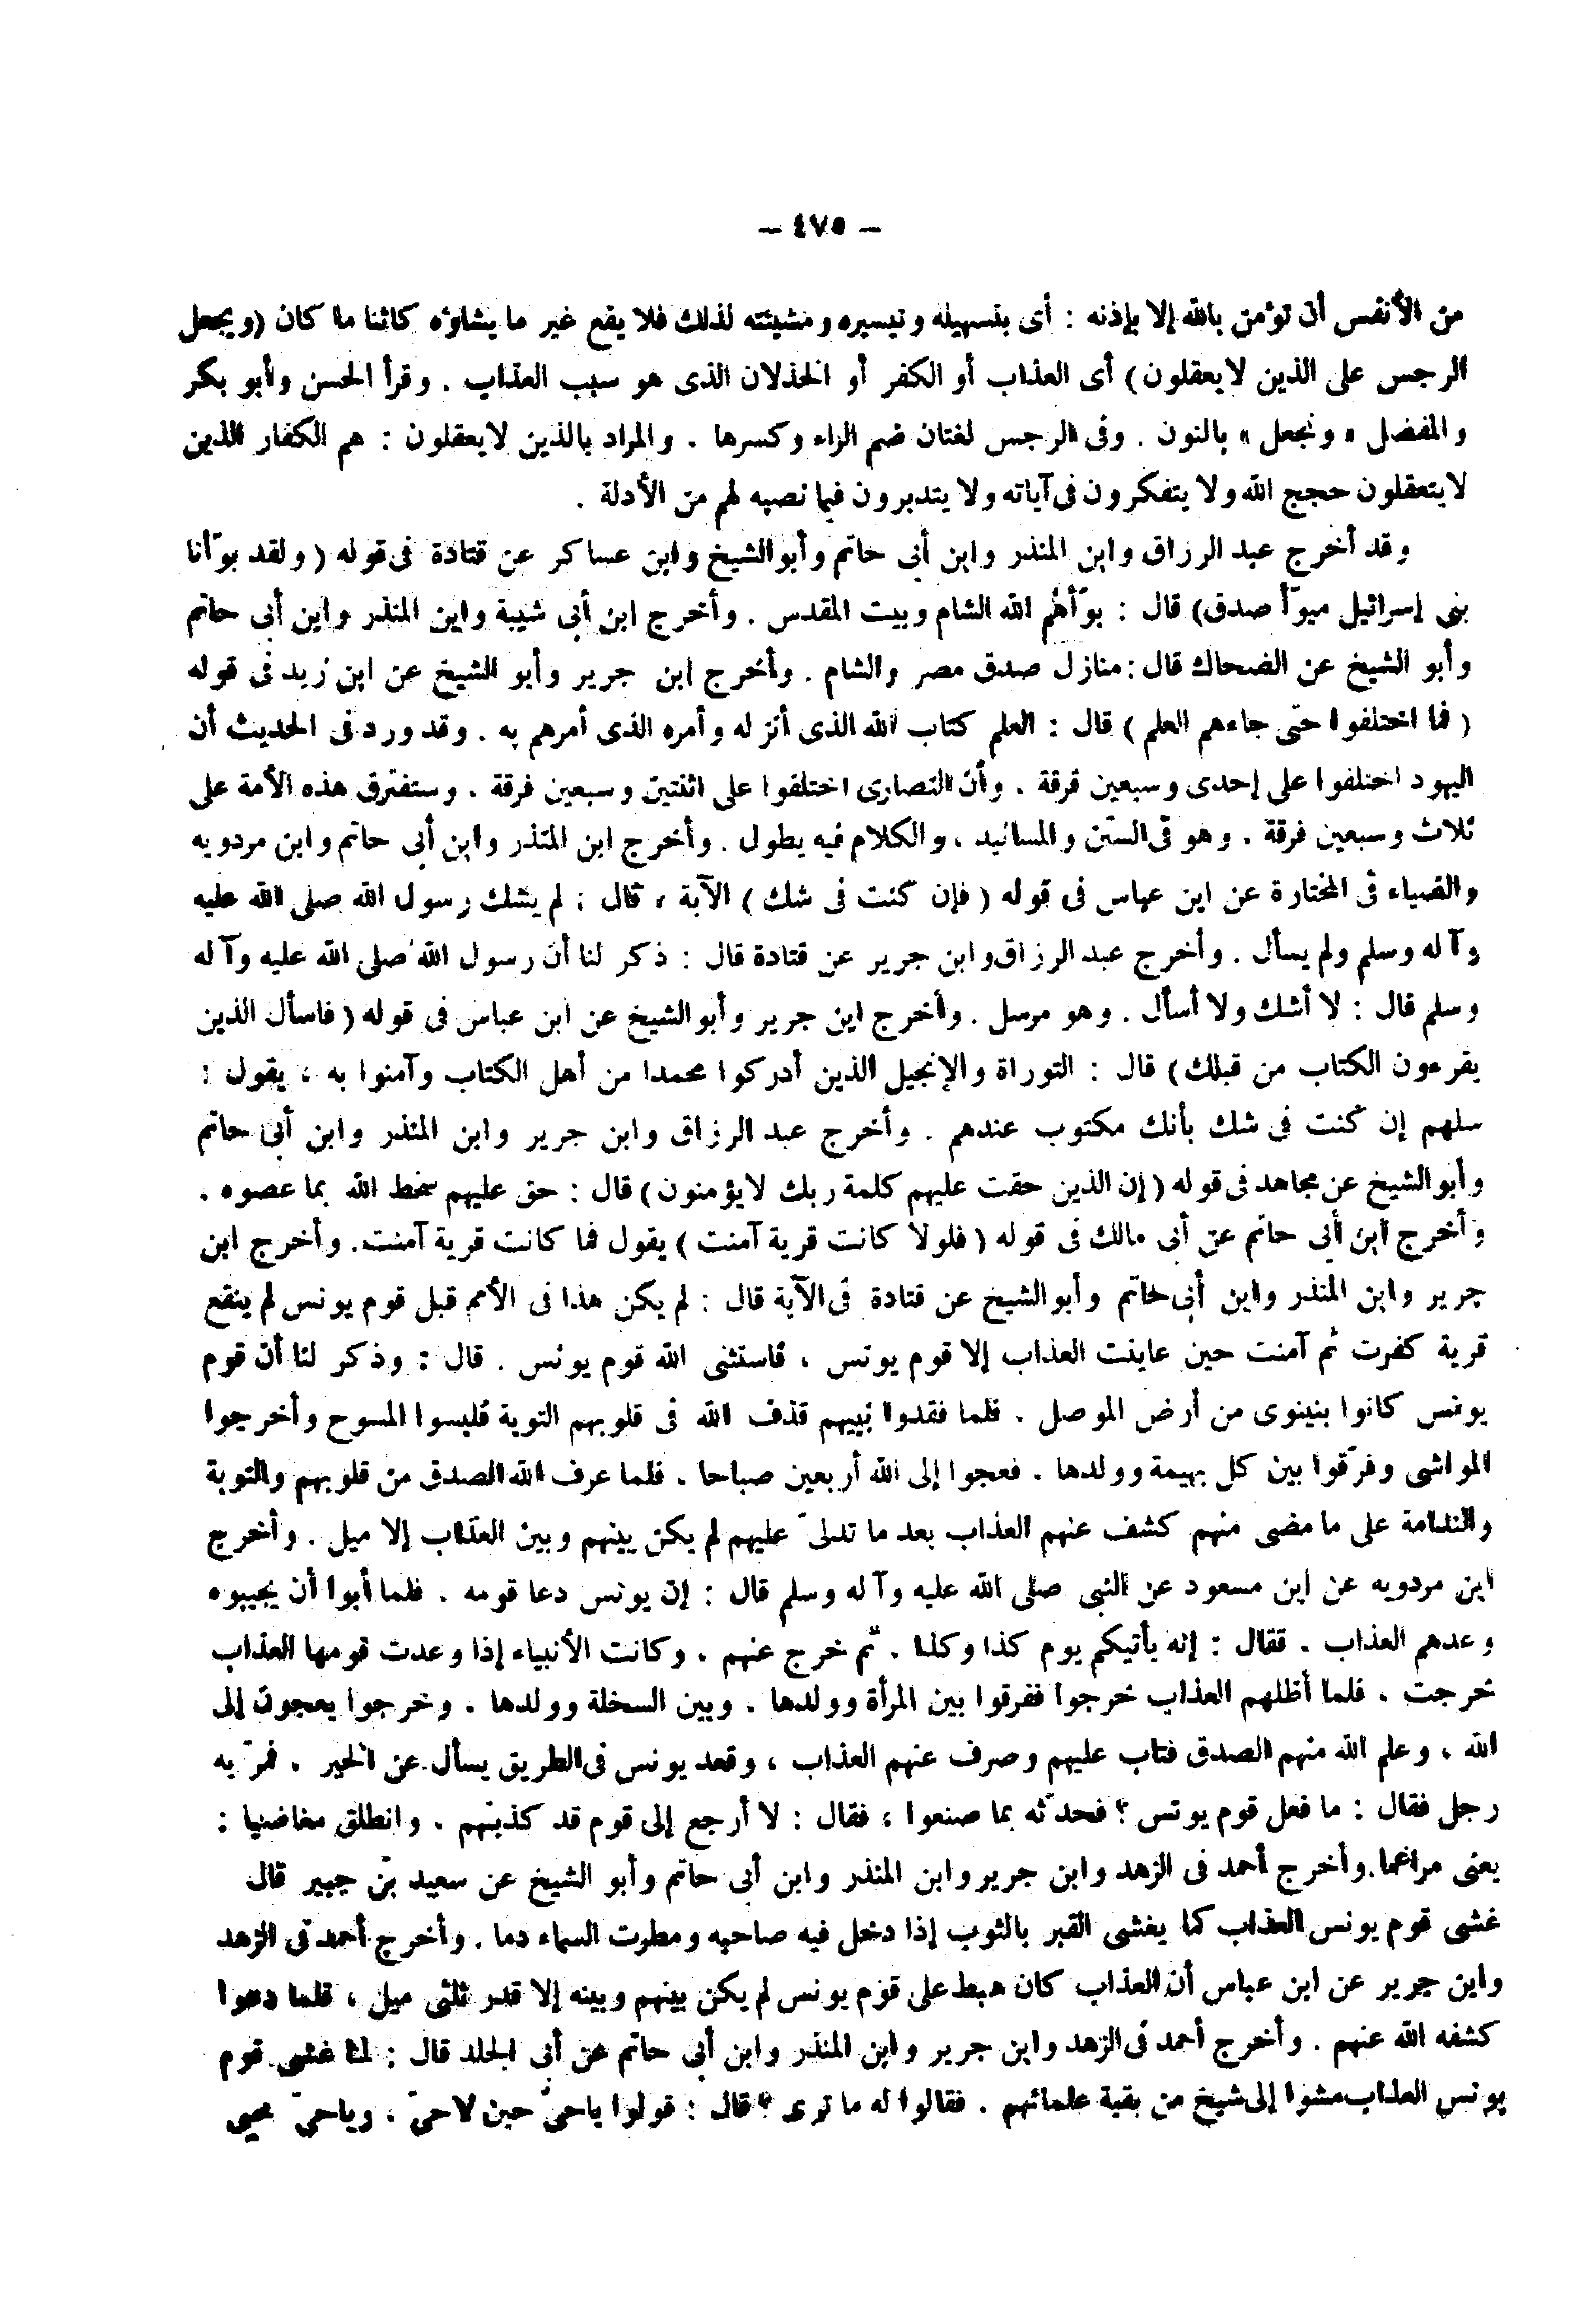 — ٤٧٥ —
من الأنفس أن تؤمن بالله إلا بإذنه : أى بتسهيله وتيسيره ومشيئته لذلك فلا يقع غير ما يشاؤه كائنا ما كان (ويجعل
الرجس على الذين لا يعقلون) أى العذاب أو الكفر أو الخذلان الذى هو سبب العذاب . وقرأ الحسن وأبو بكر
والمفضل « ونجعل » بالنون . وفى الرجس لغتان ضم الراء وكسرها . والمراد بالذين لا يعقلون : هم الكفار الذين
لا يتعقلون حجج الله ولا يتفكرون فى آياته ولا يتدبرون فيما نصبه لهم من الأدلة .
وقد أخرج عبد الرزاق وابن المنذر وابن أبى حاتم وأبو الشيخ وابن عساكر عن قتادة فى قوله ( ولقد بوّأنا
بنى إسرائيل مبوّأ صدق) قال : بوّأهم الله الشام وبيت المقدس . وأخرج ابن أبى شيبة وابن المنذر وابن أبى حاتم
وأبو الشيخ عن الضحاك قال : منازل صدق مصر والشام . وأخرج ابن جرير وأبو الشيخ عن ابن زيد فى قوله
( فما اختلفوا حتى جاءهم العلم ) قال : العلم كتاب الله الذى أنزله وأمره الذى أمرهم به . وقد ورد فى الحديث أن
اليهود اختلفوا على إحدى وسبعين فرقة . وأن النصارى اختلفوا على اثنتين وسبعين فرقة . وستفترق هذه الأمة على
ثلاث وسبعين فرقة . وهو فى السنن والمسانيد ، والكلام فيه يطول . وأخرج ابن المنذر وابن أبى حاتم وابن مردويه
والضياء فى المختارة عن ابن عباس فى قوله ( فإن كنت فى شك ) الآية ، قال : لم يشك رسول الله صلى الله عليه
وآله وسلم ولم يسأل . وأخرج عبد الرزاق وابن جرير عن قتادة قال : ذكر لنا أن رسول الله صلى الله عليه وآله
وسلم قال : لا أشك ولا أسأل . وهو مرسل . وأخرج ابن جرير وأبو الشيخ عن ابن عباس فى قوله ( فاسأل الذين
يقرءون الكتاب من قبلك ) قال : التوراة والإنجيل الذين أدركوا محمدا من أهل الكتاب وآمنوا به ، يقول :
سلهم إن كنت فى شك بأنك مكتوب عندهم . وأخرج عبد الرزاق وابن جرير وابن المنذر وابن أبى حاتم
وأبو الشيخ عن مجاهد فى قوله ( إن الذين حقت عليهم كلمة ربك لا يؤمنون ) قال : حق عليهم سخط الله بما عصوه .
وأخرج ابن أبى حاتم عن أبى مالك فى قوله ( فلولا كانت قرية آمنت ) يقول فما كانت قرية آمنت. وأخرج ابن
جرير وابن المنذر وابن أبى حاتم وأبو الشيخ عن قتادة فى الآية قال : لم يكن هذا فى الأمم قبل قوم يونس لم ينفع
قرية كفرت ثم آمنت حين عاينت العذاب إلا قوم يونس ، فاستثنى الله قوم يونس . قال : وذكر لنا أن قوم
يونس كانوا بنينوى من أرض الموصل . فلما فقدوا نبيهم قذف الله فى قلوبهم التوبة فلبسوا المسوح وأخرجوا
المواشى وفرّقوا بين كل بهيمة وولدها . فعجوا إلى الله أربعين صباحا . فلما عرف الله الصدق من قلوبهم والتوبة
والندامة على ما مضى منهم كشف عنهم العذاب بعد ما تدلى عليهم لم يكن بينهم وبين العذاب إلا ميل . وأخرج
ابن مردويه عن ابن مسعود عن النبى صلى الله عليه وآله وسلم قال : إن يونس دعا قومه . فلما أبوا أن يجيبوه
وعدهم العذاب . فقال : إنه يأتيكم يوم كذا وكذا . ثم خرج عنهم . وكانت الأنبياء إذا وعدت قومها العذاب
خرجت . فلما أظلهم العذاب خرجوا ففرقوا بين المرأة وولدها . وبين السخلة وولدها . وخرجوا يعجون إلى
الله ، وعلم الله منهم الصدق فتاب عليهم وصرف عنهم العذاب ، وقعد يونس فى الطريق يسأل عن الخبر . فمرّ به
رجل فقال : ما فعل قوم يونس ؟ فحدّثه بما صنعوا ، فقال : لا أرجع إلى قوم قد كذبتهم . وانطلق مغاضبا :
يعنى مراغما. وأخرج أحمد فى الزهد وابن جرير وابن المنذر وابن أبى حاتم وأبو الشيخ عن سعيد بن جبير قال
غشى قوم يونس العذاب كما يغشى القبر بالثوب إذا دخل فيه صاحبه ومطرت السماء دما . وأخرج أحمد فى الزهد
وابن جرير عن ابن عباس أن العذاب كان هبط على قوم يونس لم يكن بينهم وبينه إلا قدر ثلثى ميل ، فلما دعوا
كشفه الله عنهم . وأخرج أحمد فى الزهد وابن جرير وابن المنذر وابن أبى حاتم عن أبى الجلد قال : لما غشى قوم
يونس العذاب مشوا إلى شيخ من بقية علمائهم . فقالوا له ما ترى ؟ قال : قولوا ياحىّ حين لاحىّ ، وياحىّ محيى